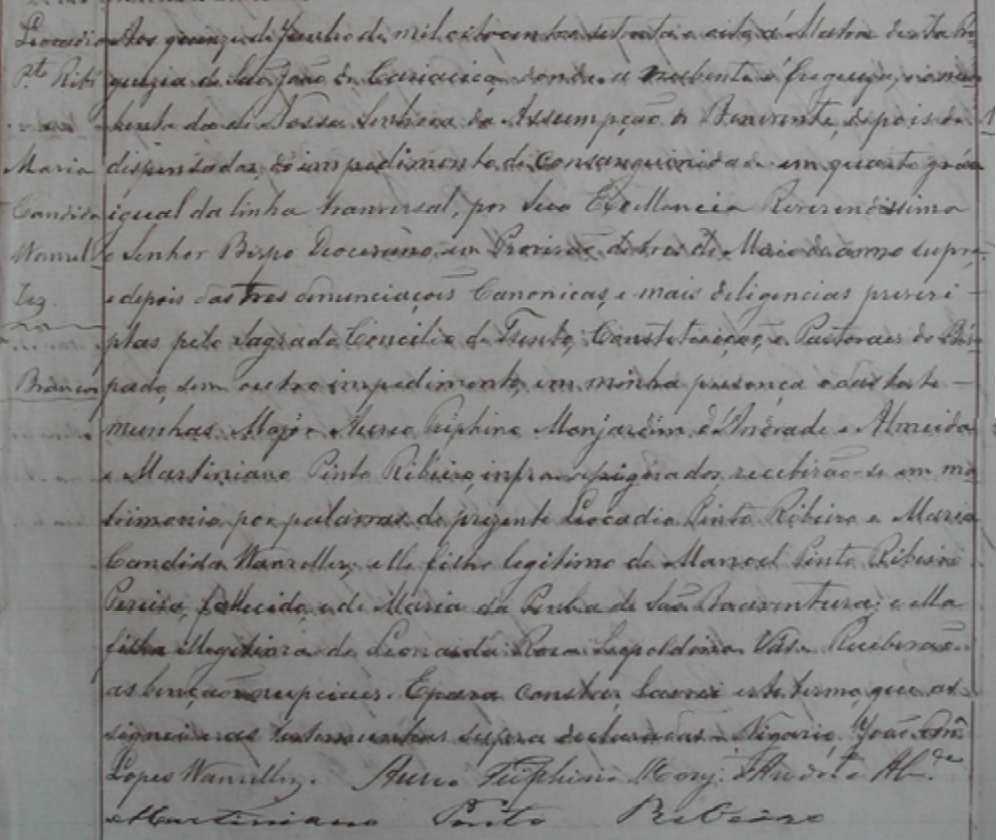 Leocadio
Pto Ribº
Maria
Candida
Wanzel
lez
Brancos
Aos quinze de Junho de mil oito centos setenta e oito, á Matriz desta Fre
guezia de São João de Cariacica, donde a nubente é fregueza, e o nu
bente da de Nossa Senhora da Assumpção de Benevente, depois de
dispensados do impedimento de consanguinidade em quarto gráo
igual da linha tranversal, por Sua Excellencia Reverendissima
o Senhor Bispo Diocesano, em Provisão de tres de Maio do anno supra
e depois das tres denunciações Canonicas, e mais deligencias prescri
ptas pelo Sagrado Concilio de Trento, Constituição, e Pastoraes do Bis
pado, sem outro impedimento, em minha presença e das teste
munhas Major Aureo Monjardim d'Andrade e Almeida
e Martiniano Pinto Ribeiro, infra assignados, receberão-se em ma
trimonio por palavras de prezente Leocadio Pinto Ribeiro e Maria
Candida Wanzeller, elle filho legitimo de Manoel Pinto Ribeiro
Pereira, fallecido, e de Maria da Penha de São Boaventura; e ella
filha de Leonarda Rosa Leopoldina Receberão
as bençãos nupciaes. E para constar, lavrei este termo, que as
signei e as testemunhas supra declaradas. Vigario, João
Lopes Wanzeller. Aureo Monj. d'Andrª e Al.da
Martiniano Pinto Ribeiro